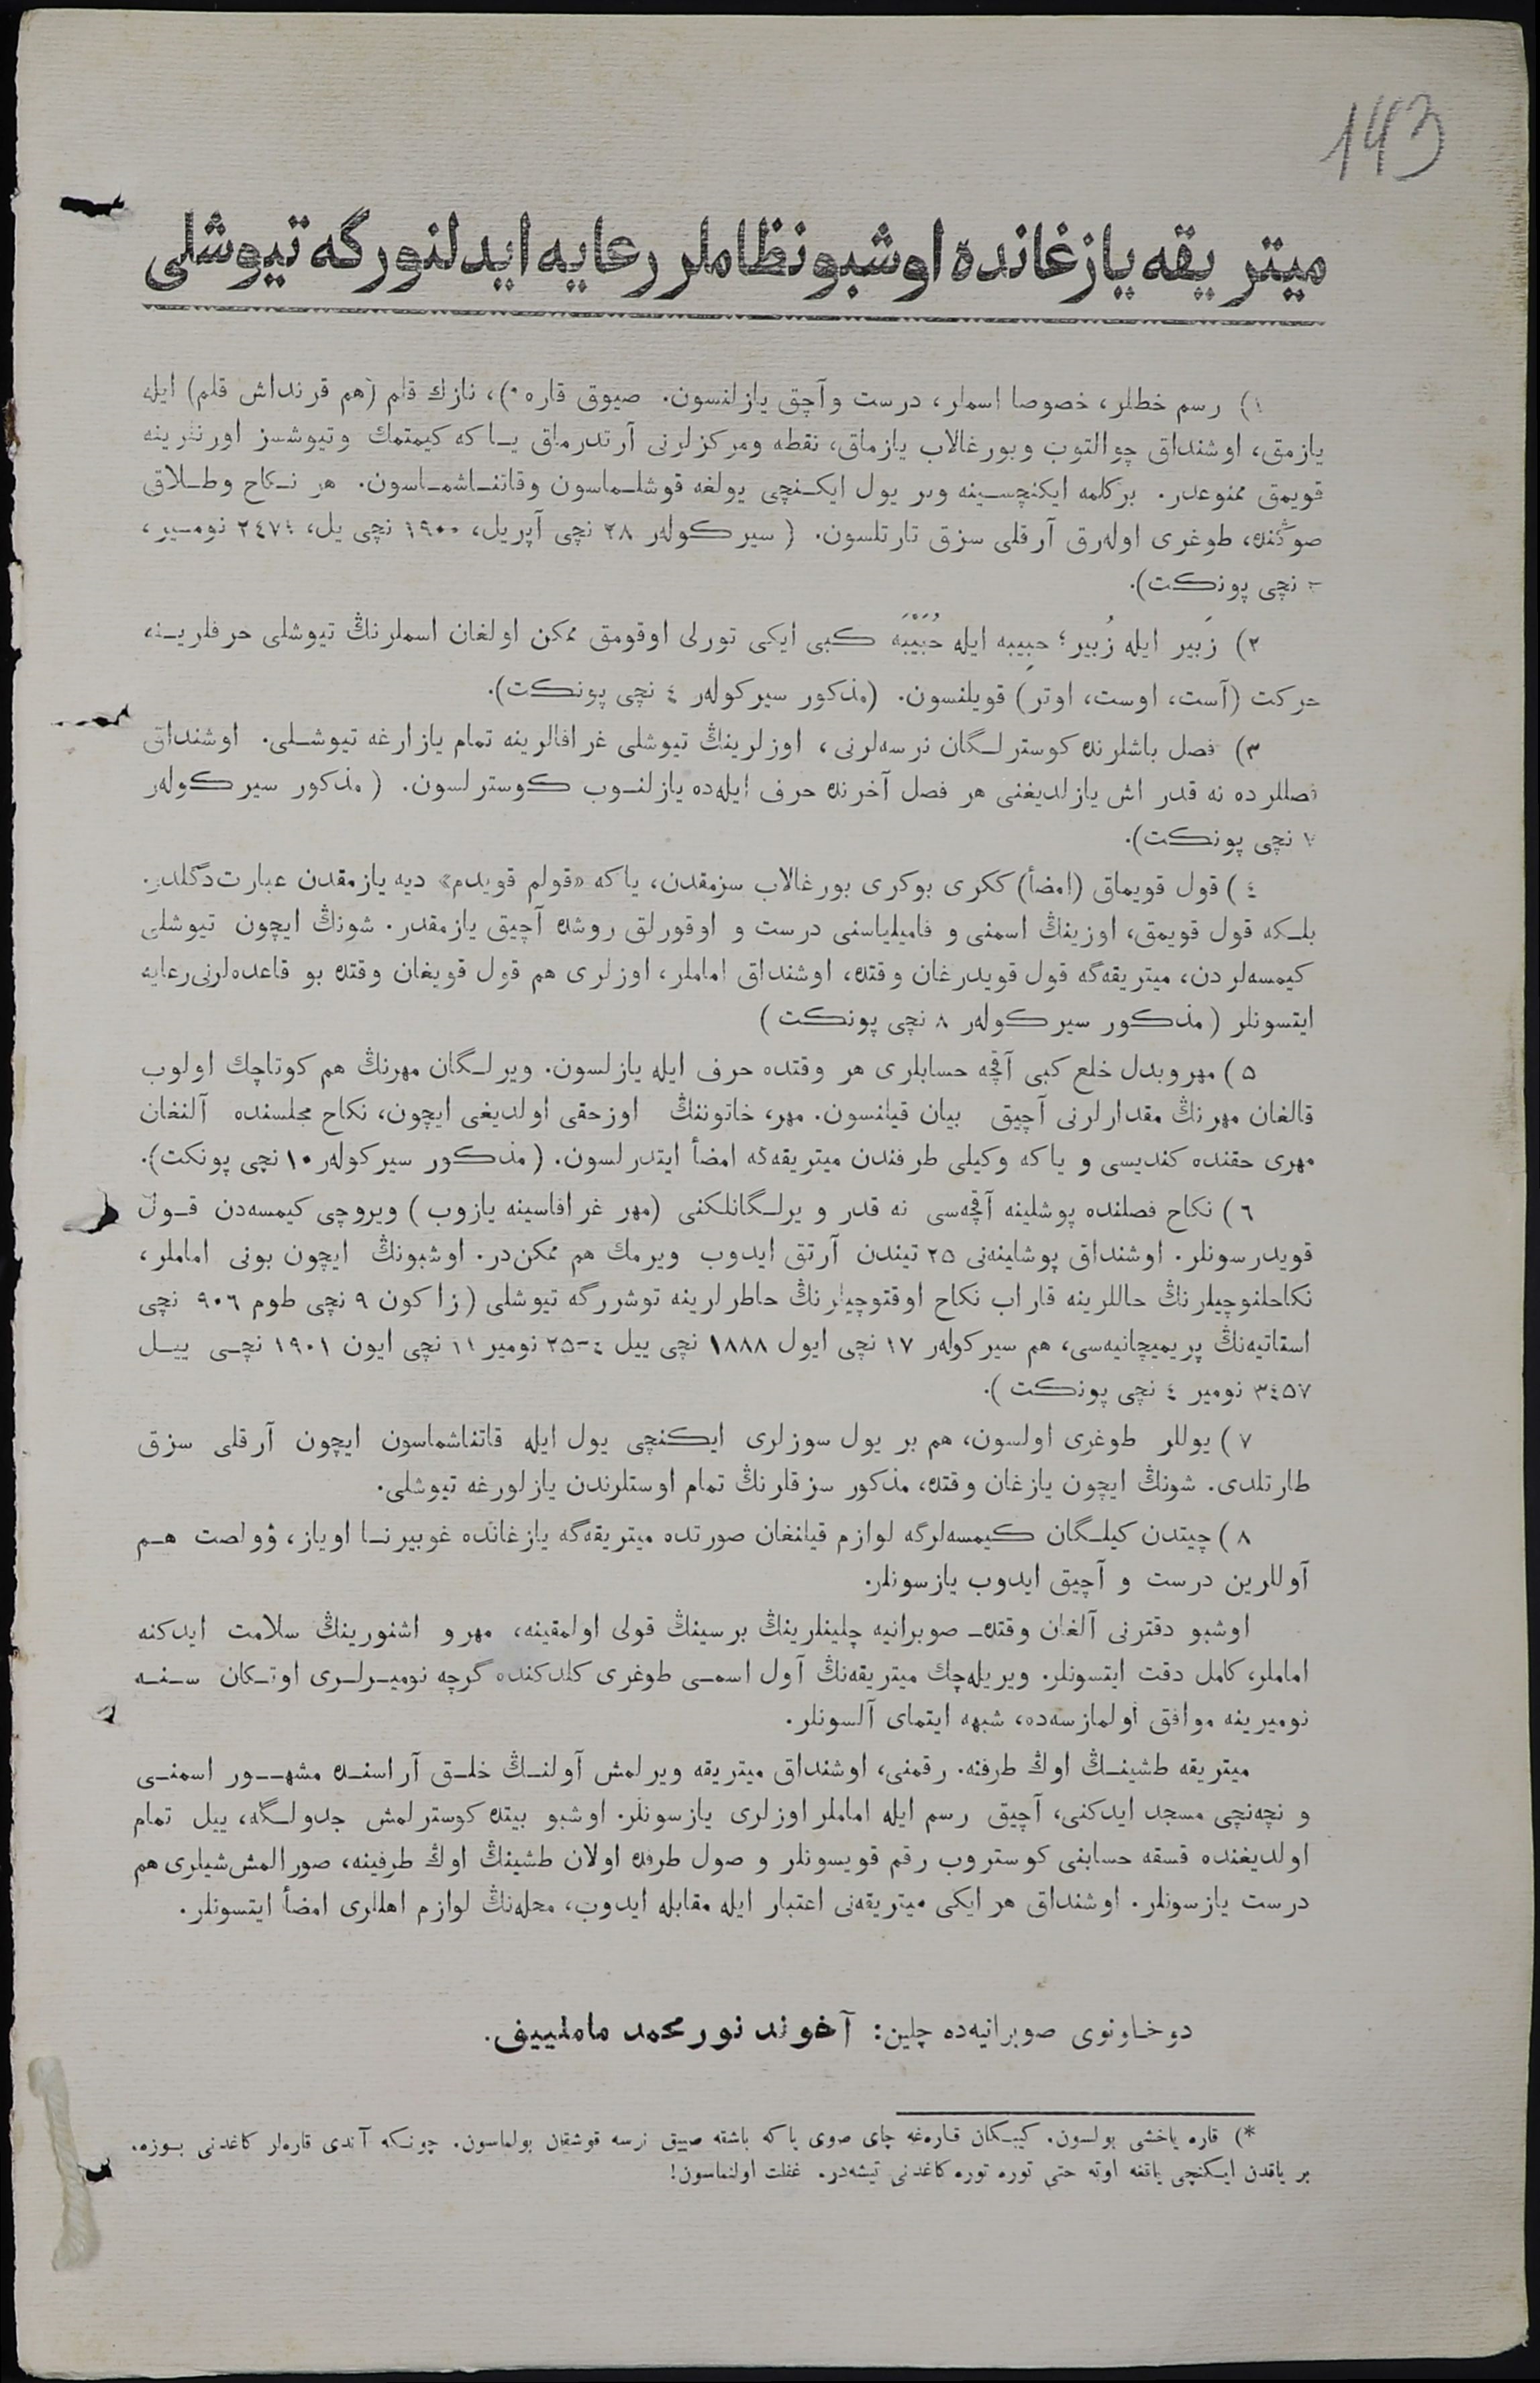 143
ميتريقه يازغانده اوشبو نظاملر رعايه ايدلنورگه تيوشلى
١) رسم خطلر، خصوصا اسملر، درست وآچق يازلنسون. صيوق قاره*)، نازك قلم (هم قرنداش قلم) ايله
يازمق، اوشنداق چوالتوب وبورغالاب يازماق، نقطه ومركزلرنى آرتدرماق ياكه كيمتمك وتيوشسز اورنلرينه
قويمق ممنوعدر. بركلمه ايكنچسينه وبر يول ايكنچى يولغه قوشلماسون وقاتناشماسون. هر نكاح وطلاق
صوڭنده، طوغرى اولەرق آرقلى سزق تارتلسون. (سيركولەر ٢٨ نچى آپريل، ١٩٠٠ نچى يل، نومير،
نچى پونكت).
٢) زَبير ايله زُبير؛ حبِيبه ايله حُبَيْبَه كبى ايكى تورلى اوقومق ممكن اولغان اسملرنڭ تيوشلى حرفلرينه
حركت (آست، اوست، اوتر) قويلنسون. (مذكور سيركولەر ٤ نچى پونكت).
٣) فصل باشلرنده كوسترلگان نرسەلرنى، اوزلرينڭ تيوشلى غرافالرينه تمام يازارغه تيوشلى. اوشنداق
فصللرده نه قدر اش يازلديغنى هر فصل آخرنده حرف ايلەده يازلنوب كوسترلسون. (مذكور سيركولەر
٧ نچى پونكت).
٤) قول قويماق (امضأ) ككرى بوكرى بورغالاب سزمقدن، ياكه «قولم قويدم» ديه يازمقدن عبارت دگلدر.
بلكه قول قويمق، اوزينڭ اسمنى و فاميلياسنى درست و اوقورلق روشده آچيق يازمقدر. شونڭ ايچون تيوشلى
كيمسەلردن، ميتريقەگه قول قويدرغان وقتده، اوشنداق اماملر، اوزلرى هم قول قويغان وقتده بو قاعدەلرنى رعايه
ايتسونلر (مذكور سيركولەر ٨ نچى پونكت)
٥) مهر وبدل خلع كبى آقچه حسابلرى هر وقتده حرف ايله يازلسون. ويرلگان مهرنڭ هم كوتاچك اولوب
قالغان مهرنڭ مقدارلرنى آچيق بيان قيلنسون. مهر، خاتوننڭ اوزحقى اولديغى ايچون، نكاح مجلسنده آلنغان
مهرى حقنده كنديسى و ياكه وكيلى طرفندن ميتريقەگه امضأ ايتدرلسون. (مذكور سيركولەر ١٠ نچى پونكت).
٦) نكاح فصلنده پوشلينه آقچەسى نه قدر ويرلگانلكنى (مهر غرافاسينه يازوب) ويروچى كيمسەدن قول
قويدرسونلر. اوشنداق پوشلينەنى ٢٥ تيندن آرتق ايدوب ويرمك هم ممكن در. اوشبونڭ ايچون بونى اماملر،
نكاحلنوچيلرنڭ حاللرينه قاراب نكاح اوقتوچيلرنڭ خاطرلرينه توشررگه تيوشلى (زاكون ٩ نچى طوم ٩٠٦ نچى
استاتيەنڭ پريميچانيەسى، هم سيركولەر ١٧ نچى ايول ١٨٨٨ نچى ييل ٢٥٠٤ نومير ١١ نچى ايون ١٩٠١ نچى ييل
٣٤٥٧ نومير ٤ نچى پونكت).
٧) يوللر طوغرى اولسون، هم بر يول سوزلرى ايكنچى يول ايله قاتناشماسون ايچون آرقلى سزق
طارتلدى. شونڭ ايچون يازغان وقتده، مذكور سزقلرنڭ تمام اوستلرندن يازلورغه تيوشلى.
٨) چيتدن كيلگان كيمسەلرگه لوازم قيلنغان صورتده ميتريقەگه يازغانده غوبيرنا اوياز، ۋولصت هم
آوللرين درست و آچيق ايدوب يازسونلر.
اوشبو دفترنى آلغان وقتده صوبرانيه چلينلرينڭ برسينڭ قولى اولمقينه، مهر و اشنورينڭ سلامت ايدكنه
اماملر، كامل دقت ايتسونلر. ويريلەچك ميتريقەنڭ آول اسمى طوغرى كلدكنده گرچه نوميرلرى اوتكان سنه
نوميرينه موافق اولمازسەده، شبهه ايتماى آلسونلر.
ميتريقه طشينڭ اوڭ طرفنه. رقمنى، اوشنداق ميتريقه ويرلمش آولنڭ خلق آراسنده مشهور اسمنى
و نچەنچى مسجد ايدكنى، آچيق رسم ايله اماملر اوزلرى يازسونلر. اوشبو بيتده كوسترلمش جدولگه، ييل تمام
اولديغنده قسقه حسابنى كوستروب رقم قويسونلر و صول طرفده اولان طشينڭ اوڭ طرفينه، صورالمش شيلرى هم
درست يازسونلر. اوشنداق هر ايكى ميتريقەنى اعتبار ايله مقابله ايدوب، محلەنڭ لوازم اهللرى امضأ ايتسونلر.
دوخاونوى صوبرانيەده چلين: آخوند نورمحمد ماملييف.
*) قاره ياخشى بولسون. كيبكان قارەغه چاى صوى ياكه باشقه صييق نرسه قوشقان بولماسون. چونكه آندى قارەلر كاغدنى بوزه.
بر ياقدن ايكنچى ياقغه اوته حتى توره توره كاغدنى تيشەدر. غفلت اولنماسون!